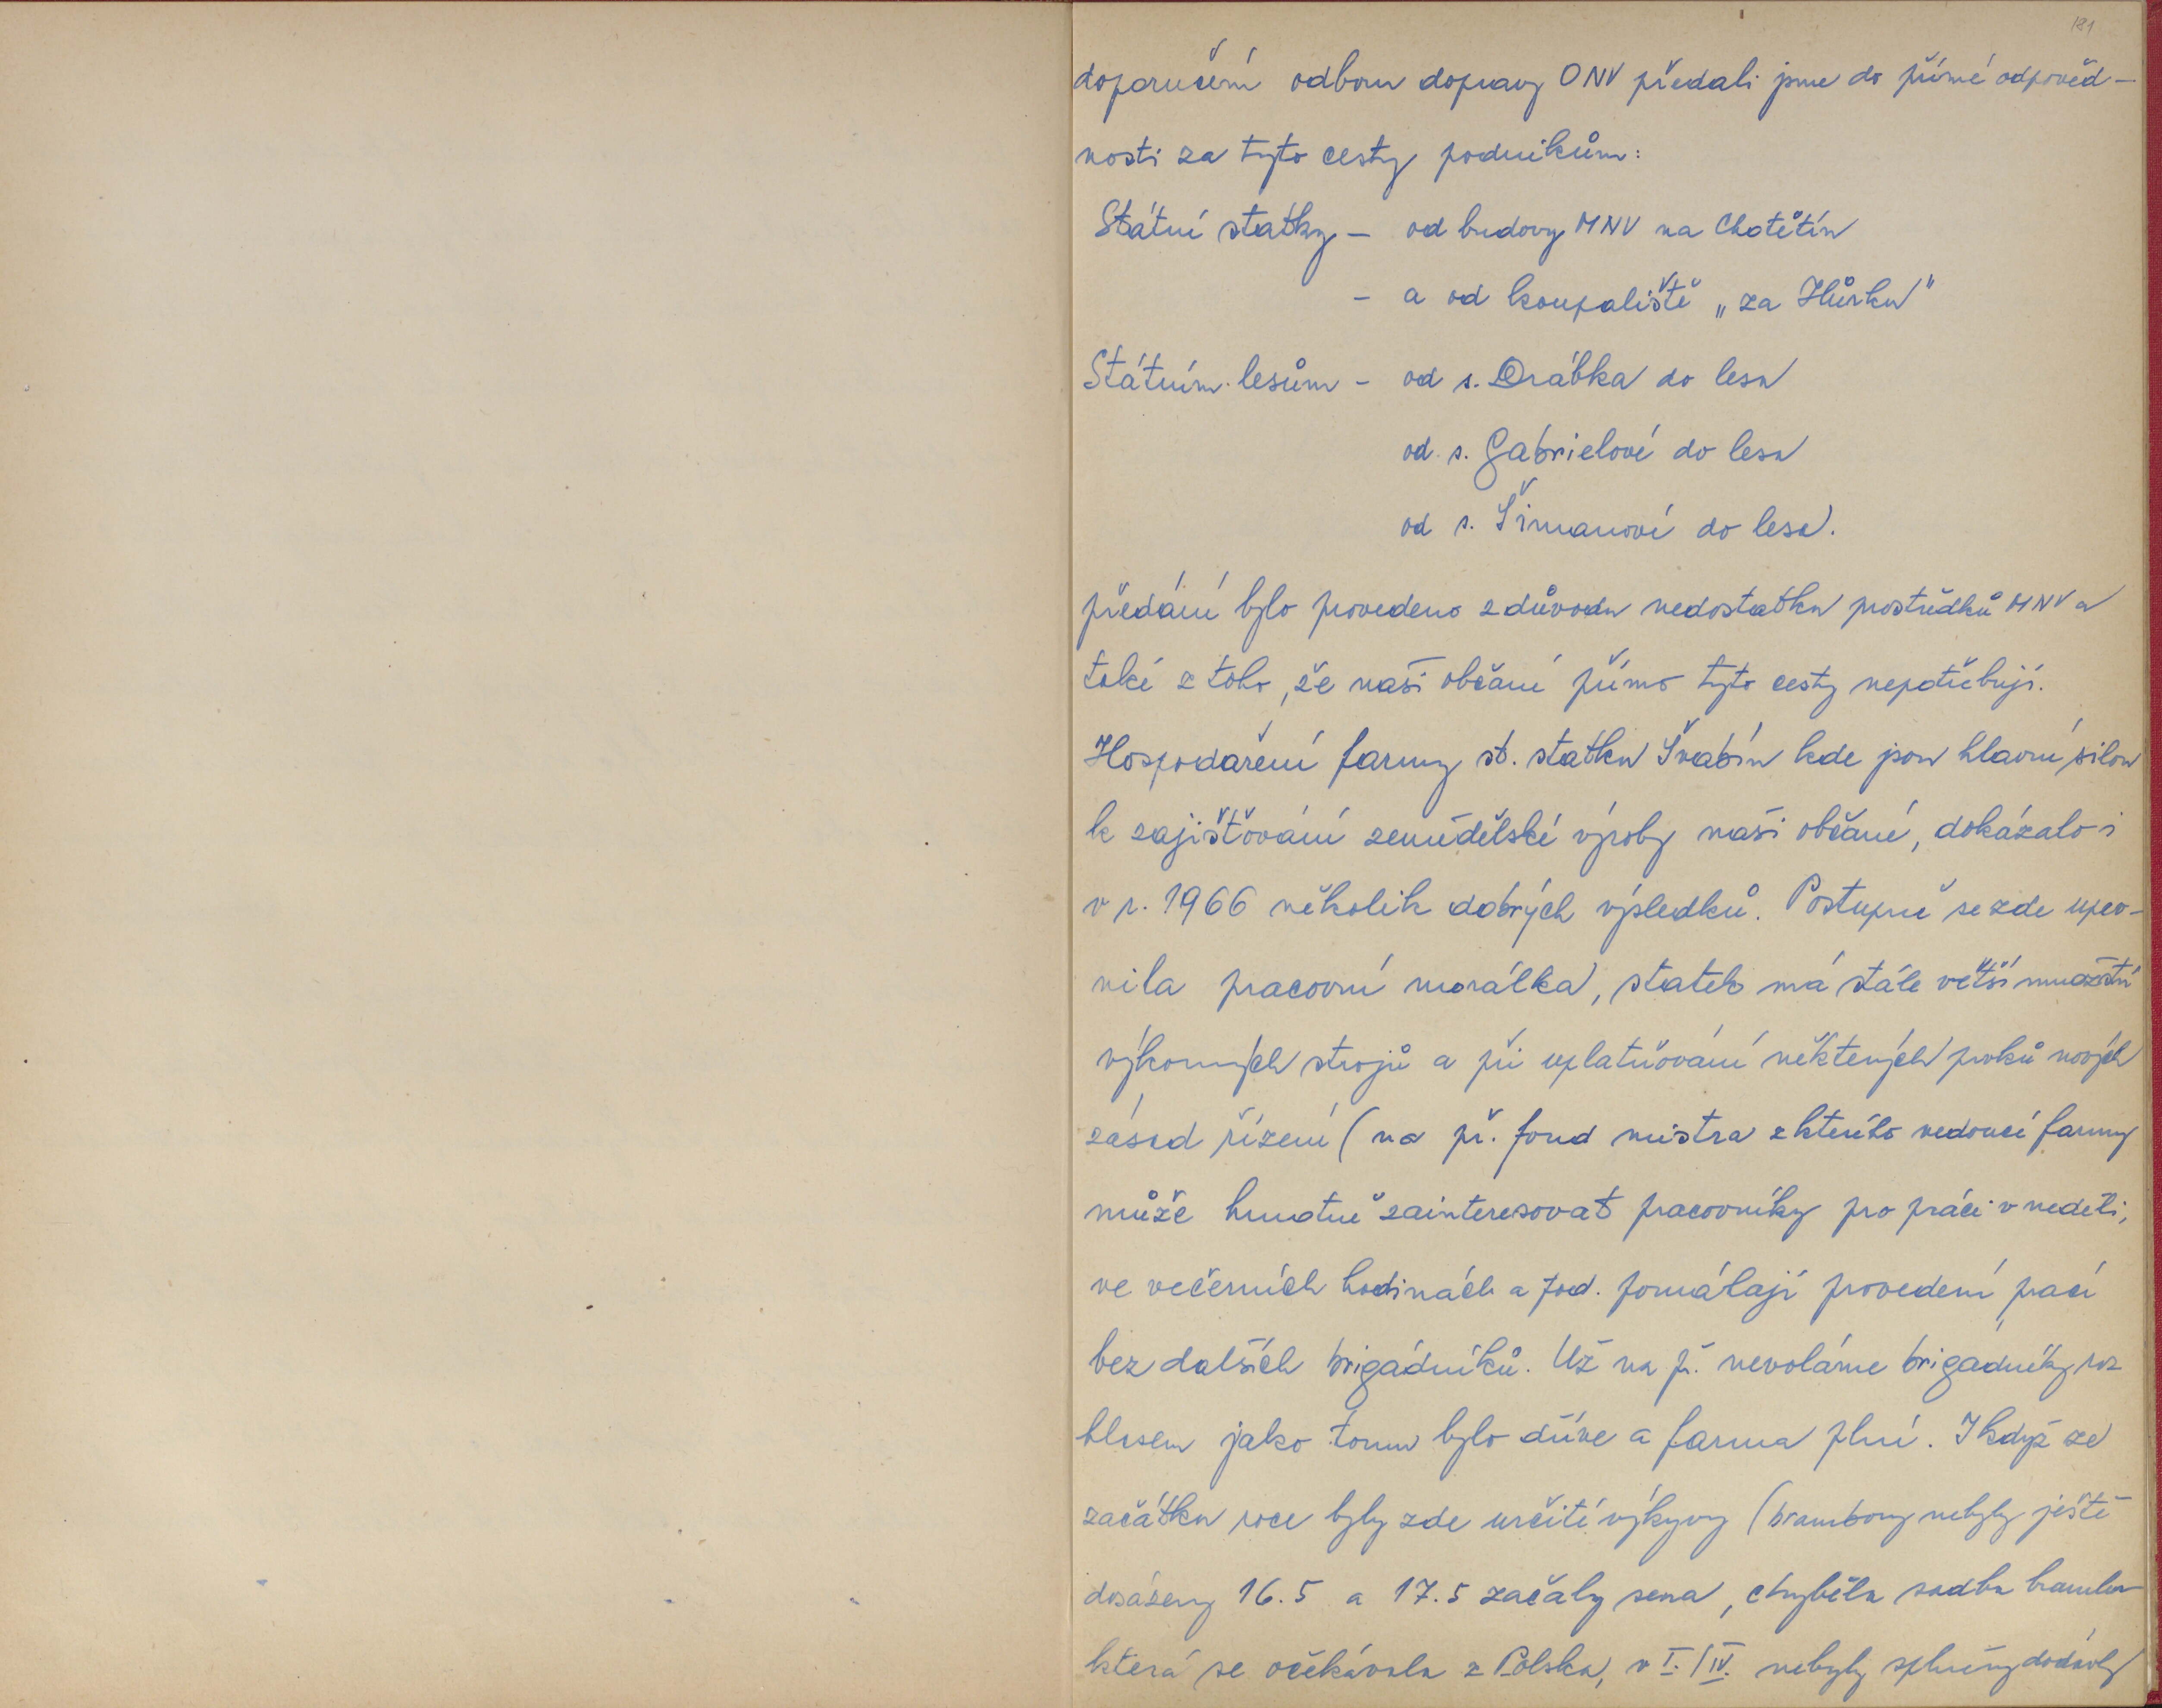 181
doporučení odboru dopravy ONV předali jsme do přímé odpověd-
nosti za tyto cesty podnikům:
Státní statky - od budovy MNV na Chotětín
- a od koupaliště „za Hůrku"
Státním lesům - od s. Drábka do lesa
od s. Gabrielové do lesa
od s. Šimanové do lesa.
předání bylo provedeno z důvodu nedostatku prostředků MNV a
také z toho, že naši občané přímo tyto cesty nepotřebují.
Hospodaření farmy st. statku Švabín kde jsou hlavní silou
k zajišťování zemědělské výroby naši občané, dokázalo i
v r. 1966 několik dobrých výsledků. Postupně se zde upev-
nila pracovní morálka, statek má stále větší množství
výkonných strojů a při uplatňování některých prvků nových
zásad řízení (na př. fond mistra z kterého vedoucí farmy
může hmotně zainteresovat pracovníky pro práci v neděli,
ve večerních hodinách a pod. pomáhají provedení prací
bez dalších brigádníků. Už na př. nevoláme brigádníky roz
hlasem jako tomu bylo dříve a farma plní. I když ze
začátku roce byly zde určité výkyvy (brambory nebyly ještě
dosázeny 16.5 a 17.5 začaly sena, chyběla sadba brambor
která se očekávala z Polska, v I./IV. nebyly splněny dodávky